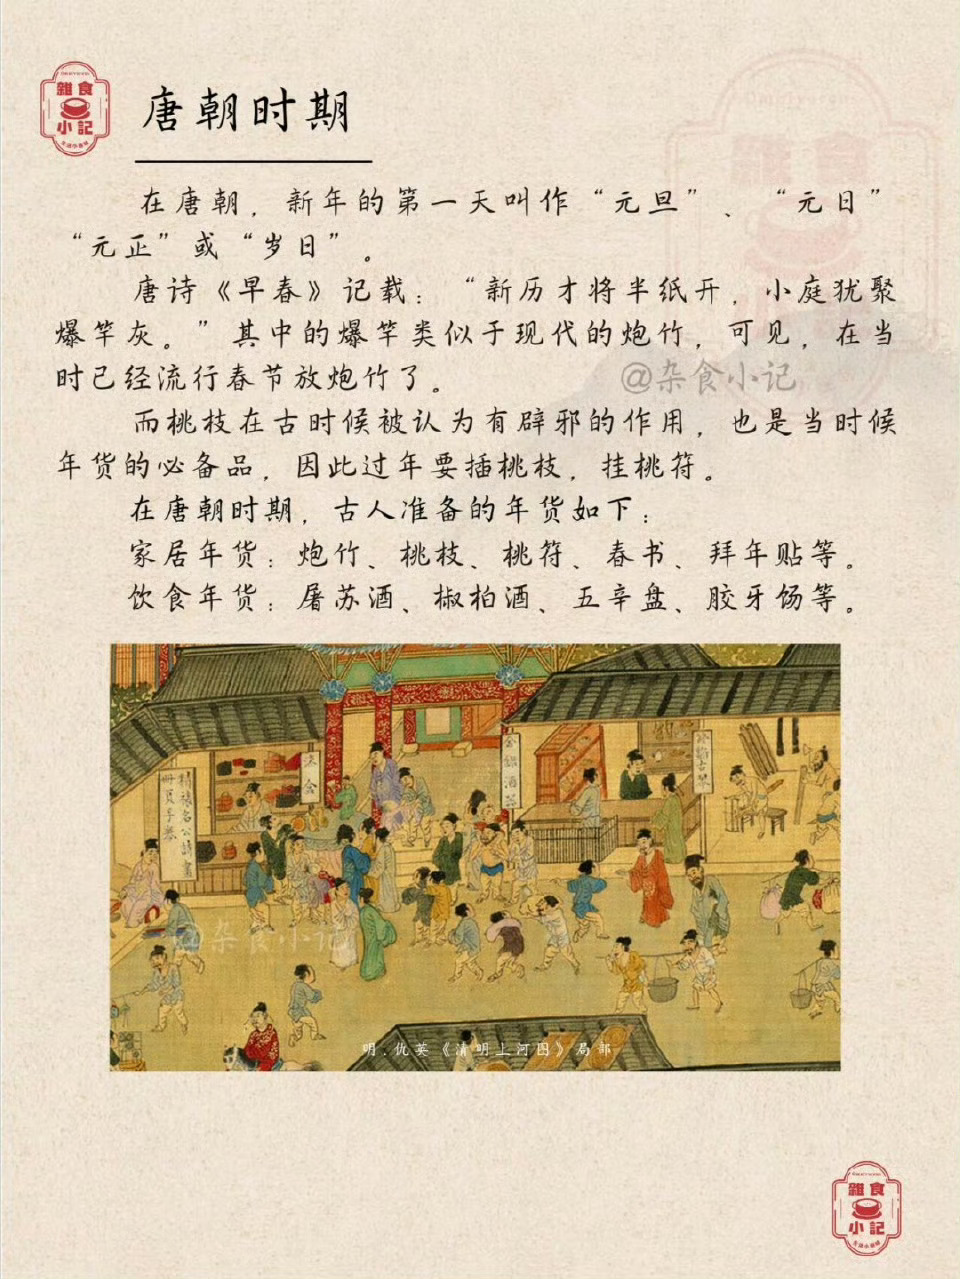 雜食
小記
唐朝时期
在唐朝，新年的第一天叫作“元旦”、“元日”
“元正”或“岁日”。
唐诗《早春》记载：“新历才将半纸开，小庭犹聚
爆竿灰。”其中的爆竿类似于现代的炮竹，可见，在当
时已经流行春节放炮竹了。
@杂食小记
而桃枝在古时候被认为有辟邪的作用，也是当时候
年货的必备品，因此过年要插桃枝，挂桃符。
在唐朝时期，古人准备的年货如下：
家居年货：炮竹、桃枝、桃符、春书、拜年贴等。
饮食年货：屠苏酒、椒柏酒、五辛盘、胶牙饧等。
@杂食小记
明.仇英《清明上河图》局部
雜食
小記